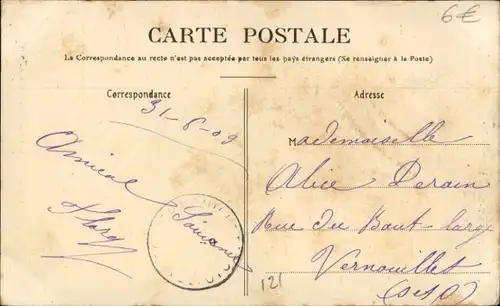 6€
CARTE POSTALE
La Correspondance au recto n'est pas acceptée par tous les pays étrangers (Se renseigner à la Poste)
Correspondance
Adresse
31-6-09
Amical
Mademoiselle
Alice Derain
Rue du Baut large
Vernouillet
(S et O)
121